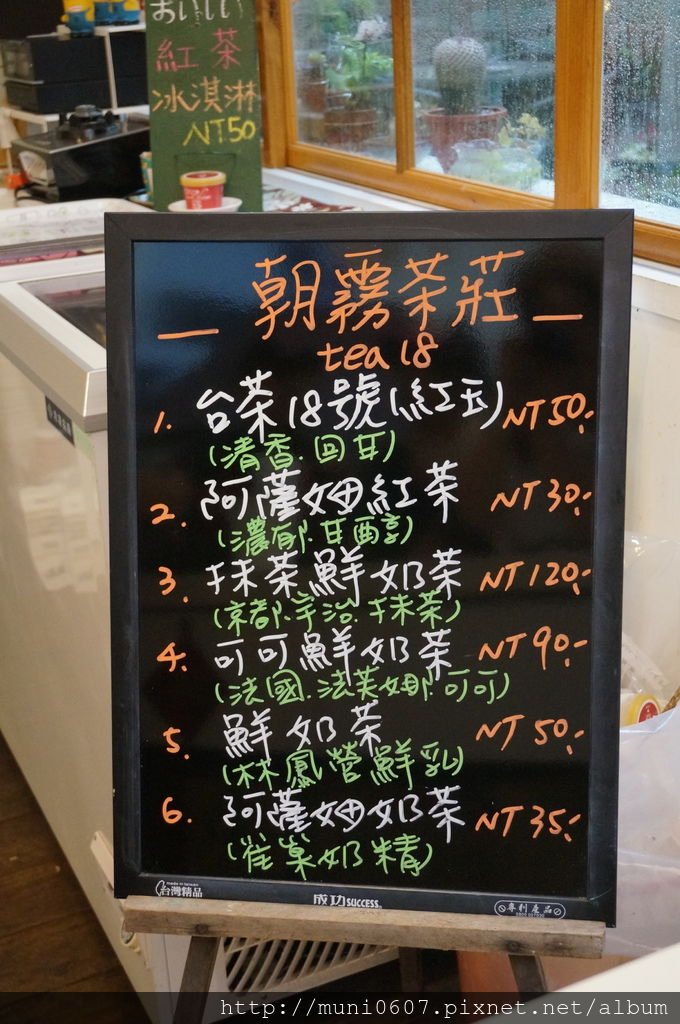 おいしい
紅茶
冰淇淋
NT50
朝霧茶莊
tea 18
1. 台茶18號(紅玉) NT50.-
(清香.回甘)
2. 阿薩姆紅茶 NT30.-
(濃郁.甘醇)
3. 抹茶鮮奶茶 NT120.-
(京都.宇治.抹茶)
4. 可可鮮奶茶 NT90.-
(法國.法芙娜可可)
5. 鮮奶茶 NT50.-
(林鳳營鮮乳)
6. 阿薩姆奶茶 NT35.-
(雀巢奶精)
made in taiwan
台灣精品
成功 SUCCESS
專利產品
http://muni0607.pixnet.net/album